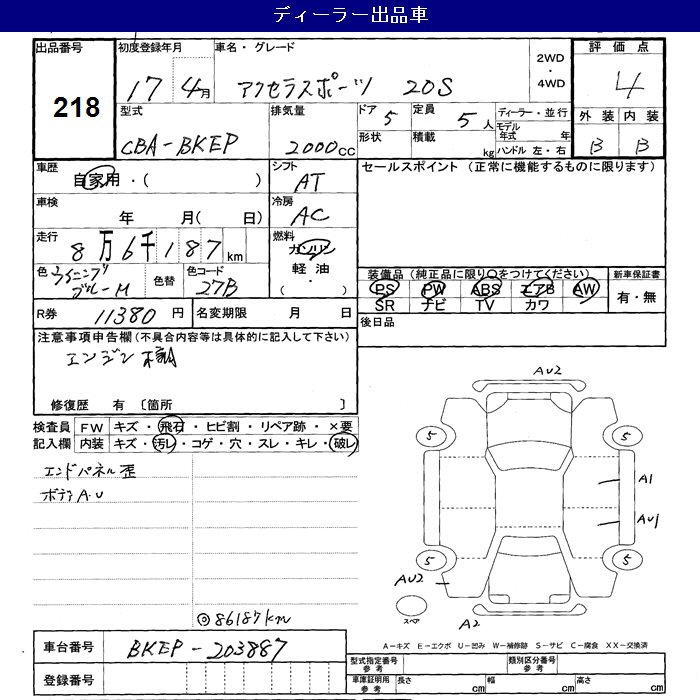 ディーラー出品車
出品番号 初度登録年月 車名・グレード 2WD・4WD 評価点
218 17 4月 アクセラスポーツ 20S 4
型式 排気量 ドア 5 定員 5人 ディーラー・並行 外装 内装
CBA-BKEP 2000cc 形状 積載 kg モデル年式 年 ハンドル 左・右 B B
車歴 自家用・( ) シフト AT セールスポイント (正常に機能するものに限ります)
車検 年 月( 日) 冷房 AC
走行 8万6千187km 燃料 ガソリン 軽油 ( ・ )
色 ウイニングブルーM 色替 色コード 27B
装備品 (純正品に限り○をつけてください) 新車保証書
PS PW ABS エアB AW 有・無
SR ナビ TV カワ
R券 11380円 名変期限 月 日 後日品
注意事項申告欄(不具合内容等は具体的に記入して下さい)
エンジン
修復歴 有 〔箇所 〕
検査員 FW キズ・飛石・ヒビ割・リペア跡・×要
記入欄 内装 キズ・汚レ・コゲ・穴・スレ・キレ・破レ
エンドパネル歪
ボディA.U
◎86187km
AU2
5 5
A1
AU1
5 5
AU2
スペア
A2
A-キズ E-エクボ U-凹み W-補修跡 S-サビ C-腐食 XX-交換済
車台番号 BKEP-203887
登録番号
型式指定番号 参考 類別区分番号 参考
車庫証明用 参考 長さ cm 幅 cm 高さ cm